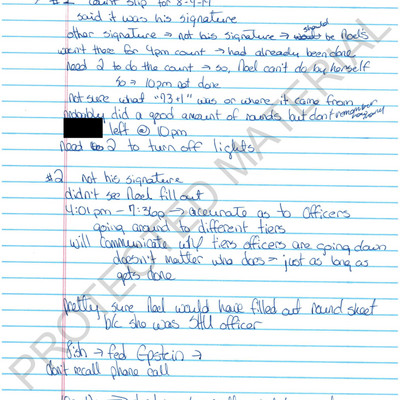 #1 count slip for 8-9-19
said it was his signature
other signature → not his signature → would should be Noel's
went there for 4pm count → had already been done
need 2 to do the count → so, Noel can't do by herself
so → 10pm not done
not sure what "73+1" was or where it came from
probably did a good amount of rounds but don't remember
left @ 10pm
need 2 to turn off lights
#2 not his signature
didn't see Noel fill out
4:01pm - 7:36p → accurate as to officers
going around to different tiers
will communicate w/ tiers officers are going down
doesn't matter who does = just as long as
gets done
pretty sure Noel would have filled out round sheet
b/c she was SHU officer
fish → fed Epstein →
don't recall phone call
PROTECTED MATERIAL